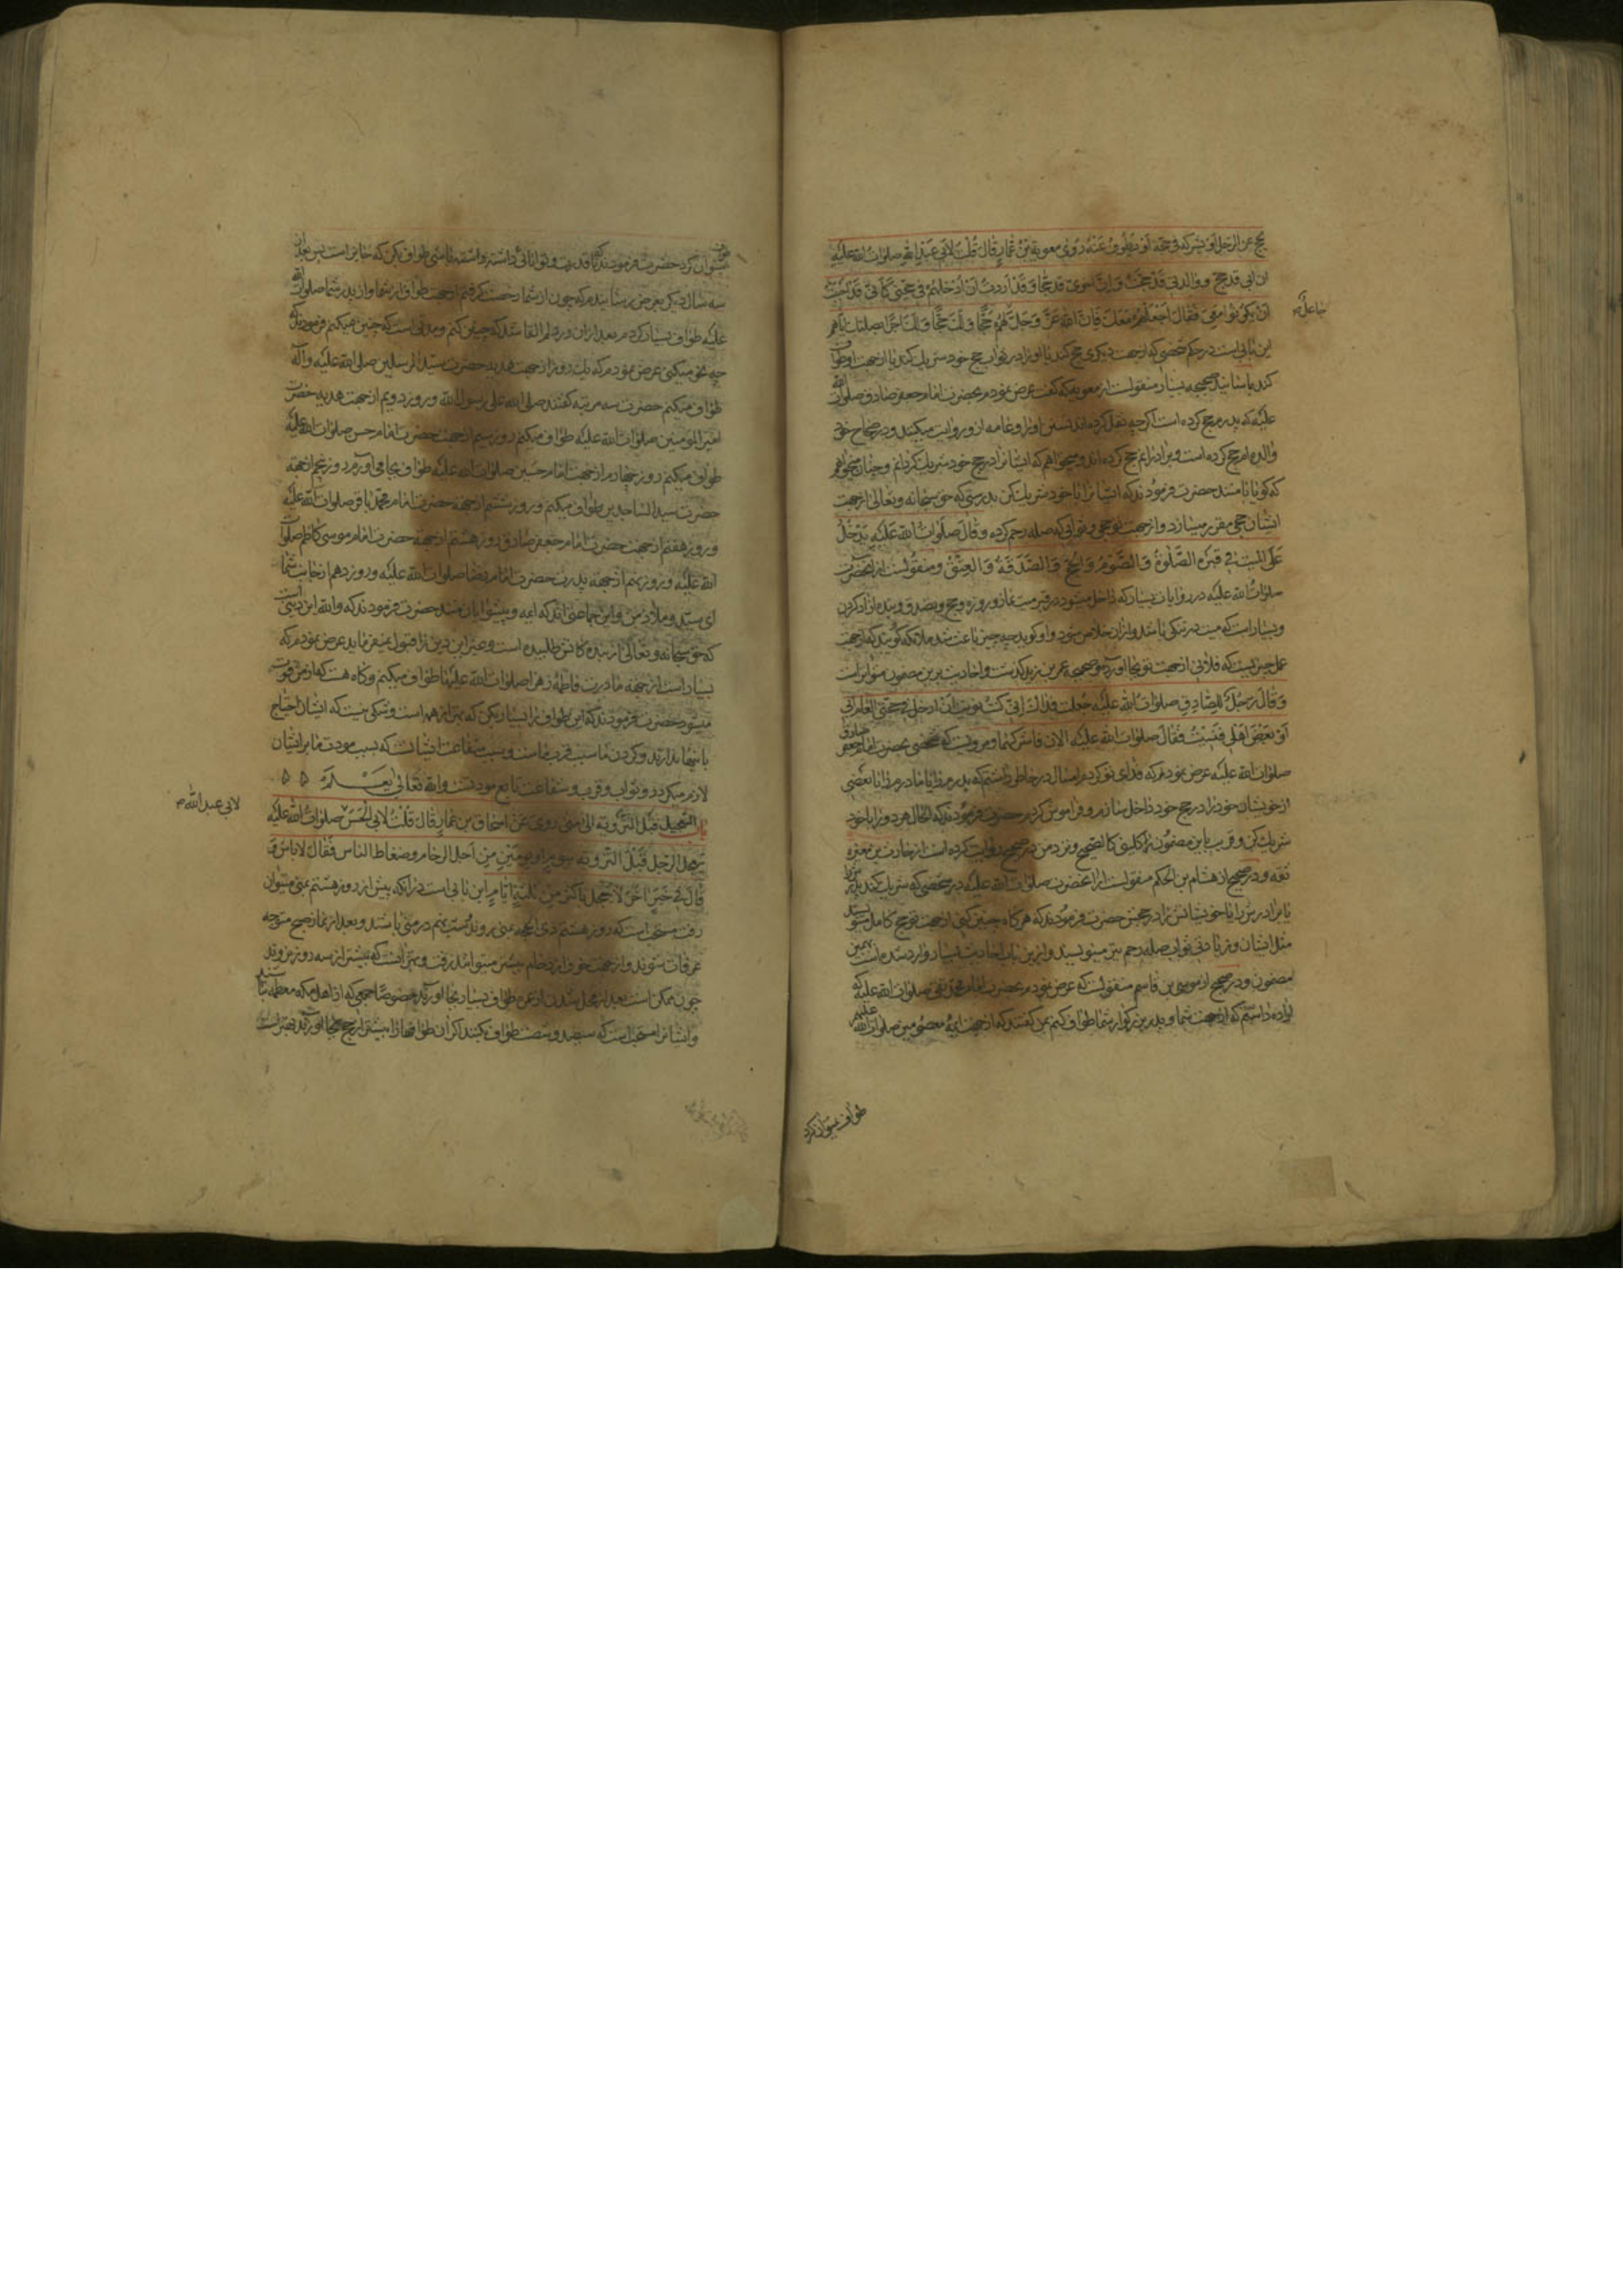 یحج عن الرجل او یشرکه فی حجه او یطوف عنه روی معویة بن عمار قال قلت لابی عبد الله صلوات الله علیه
ان ابی قد حج و والدتی قد حجت و ان اخوی قد حجا و قد اردت ان ادخلهم فی حجتی کانی قد احببت
ان یکونوا معی فقال اجعلهم معک فان الله عز و جل جاعل لهم حجا و لک حجا و لک اجرا بصلتک ایاهم
جاعل
این بابی است در حکم شخصی که از جهت دیگری حج کند یا او را در ثواب حج خود شریک کند یا از جهت او طواف
کند باسانید صحیحه بسیار منقولست از معویه که گفت عرض نمودم بحضرت امام جعفر صادق صلوات الله
علیه که پدرم حج کرده است اگرچه نقل کرده اند تسنن او را و عامه از او روایت میکنند و در صحاح خود
والده ام حج کرده است و برادرانم حج کرده اند و میخواهم که ایشانرا در حج خود شریک گردانم و چنان میخواهم
که گویا با من‌اند حضرت فرمودند که ایشانرا با خود شریک کن بدرستی که حق سبحانه و تعالی از جهت
ایشان حجی مقرر میسازد و از جهت تو حجی و ثوابی که صله رحم کرده و قال صلوات الله علیه یدخل
علی المیت فی قبره الصلوة و الصوم و الحج و الصدقة و العتق و منقولست از آنحضرت
صلوات الله علیه در روایات بسیار که داخل میشود در قبر میت نماز و روزه و حج و تصدق و بنده آزاد کردن
و بسیار است که میت در تنگی باشد و از آن خلاص شود و او گوید چه چیز باعث شد ملائکه گویند که از جهت
عمل خیریست که فلانی از جهت تو بجا آورد و صحیحه عمر بن یزید گذشت و احادیث برین مضمون متواتر است
و قال رجل للصادق صلوات الله علیه جعلت فداک انی کنت نویت ان ادخل فی حجتی العام ابی
او بعض اهلی فنسیت فقال صلوات الله علیه الان فاشرکهما و مرویست که شخصی بحضرت امام جعفر صادق
صلوات الله علیه عرض نمودم که فدای تو گردم امسال در خاطر داشتم که پدرم را یا مادرم را یا بعضی
از خویشان خود را در حج خود داخل سازم و فراموش کردم حضرت فرمودند که الحال هر دو را با خود
شریک کن و قریب باین مضمون را کلینی کالصحیح و نزد من صحیح روایت کرده است از حارث بن مغیره
ثقه و در صحیح از هشام بن الحکم منقولست از آنحضرت صلوات الله علیه در شخصی که شریک کند پدرش را
یا برادرش را یا خویشانش را در حجش حضرت فرمودند که هر گاه چنین کنی از جهت تو حج کامل مینویسند
مثل ایشان و زیادتی ثواب صله رحم نیز مینویسند و ازین باب احادیث بسیار وارد شده است بهمین
مضمون و در صحیح از موسی بن قاسم منقولست که عرض نمودم بحضرت امام محمد تقی صلوات الله علیه که
اراده داشتم که از جهت شما و پدر بزرگوار شما طواف کنم بمن گفتند که از جهت ائمه معصومین صلوات الله علیهم
طواف نمیتوان کرد
طواف نمیتوان کرد حضرت فرمودند که تا قدرت و توانائی داشته باشی طواف بکن که جایز است پس بعد از
سه سال دیگر بعرض رسانیدم که چون از شما رخصت گرفتم از جهت طواف از شما و از پدر شما صلوات الله
علیه طواف بسیار کردم بعد از آن در دلم القا شد که چنین کنم و مدتی است که چنین میکنم فرمودند که
چه نحو میکنی عرض نمودم که یک روز از جهت هدیه حضرت سید المرسلین صلی الله علیه و آله
طواف میکنم حضرت سه مرتبه گفتند صلی الله علی رسول الله و روز دویم از جهت هدیه حضرت
امیر المومنین صلوات الله علیه طواف میکنم روز سیم از جهت حضرت امام حسن صلوات الله علیه
طواف میکنم روز چهارم از جهت امام حسین صلوات الله علیه طواف بجا می آورم روز پنجم از جهة
حضرت سید الساجدین طواف میکنم و روز ششم از جهة حضرت امام محمد باقر صلوات الله علیه
و روز هفتم از جهت حضرت امام جعفر صادق روز هشتم از جهة حضرت امام موسی کاظم صلوات
الله علیه و روز نهم از جهة پدرت حضرت امام رضا صلوات الله علیه و روز دهم از جانب شما
ای سید و ملاذ من و این جماعتی اند که ائمه و پیشوایان منند حضرت فرمودند که والله این دینی است
که حق سبحانه و تعالی از بنده گانش طلبیده است و غیر این دین را قبول نمیفرماید عرض نمودم که
بسیار است از جهة مادرت فاطمه زهرا صلوات الله علیها طواف میکنم و گاه هست که از من فوت
میشود حضرت فرمودند که این طواف را بسیار بکن که بهتر از همه است و شکی نیست که ایشان احتیاج
باینها ندارند و کردن ما سبب قرب ماست و سبب شفاعت ایشانست که بسبب مودت ما بر ایشان
لازم میگردد و ثواب و قرب و شفاعت تابع مودتست والله تعالی یعلم
باب التعجیل قبل الترویة الی منی روی عن اسحاق بن عمار قال قلت لابی الحسن صلوات الله علیه
لابی عبد الله
یتعجل الرجل قبل الترویة بیوم او یومین من اجل الزحام و ضغاط الناس فقال لا باس و
قال فی خبر اخر لا یتعجل باکثر من ثلثة ایام این بابی است در آنکه پیش از روز هشتم بمنی میتوان
رفت مستحب است که روز هشتم ذی الحجه بمنی روند و شب نهم در منی باشند و بعد از نماز صبح متوجه
عرفات شوند و از جهت خوف ازدحام پیشتر میتوانند رفت و بهتر آنست که پیشتر از سه روز نروند
چون ممکن است بعد از محل شدن از عمره طواف بسیار بجا آورند خصوصا جمعی که از اهل مکه معظمه نباشند
و ایشانرا مستحب است که سیصد و شصت طواف بکنند اگر آن طوافها را پیشتر از حج بجا آورند بهتر است